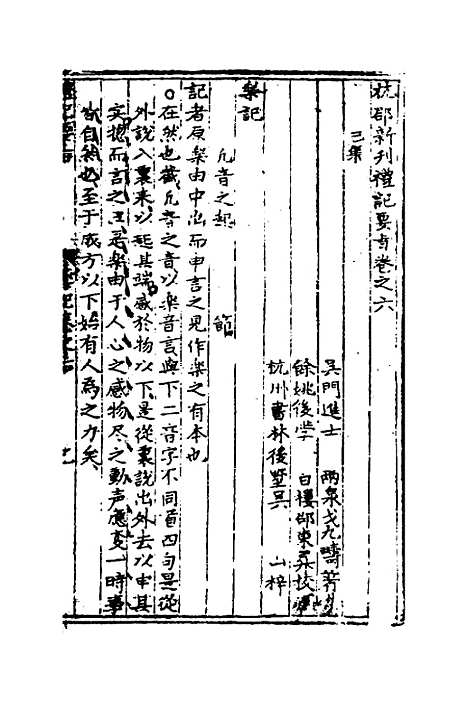 杭郡新刊禮記要旨卷之六
三集
吳門進士 兩泉戈九疇著
餘姚後學 白樓邵東
杭州書林後墅吳 山梓
樂記
凡音之起 節
記者原樂由中出而申言之見作樂之有本也
○在然也截凡音之音以樂音言與下二音字不同首四句是從
外說入裏來以起其端感於物以下是從裏說出外去以申其
實揔而言之只是樂由于人心之感物尽之動声應变一時事
皆自然也至于成方以下始有人為之力矣